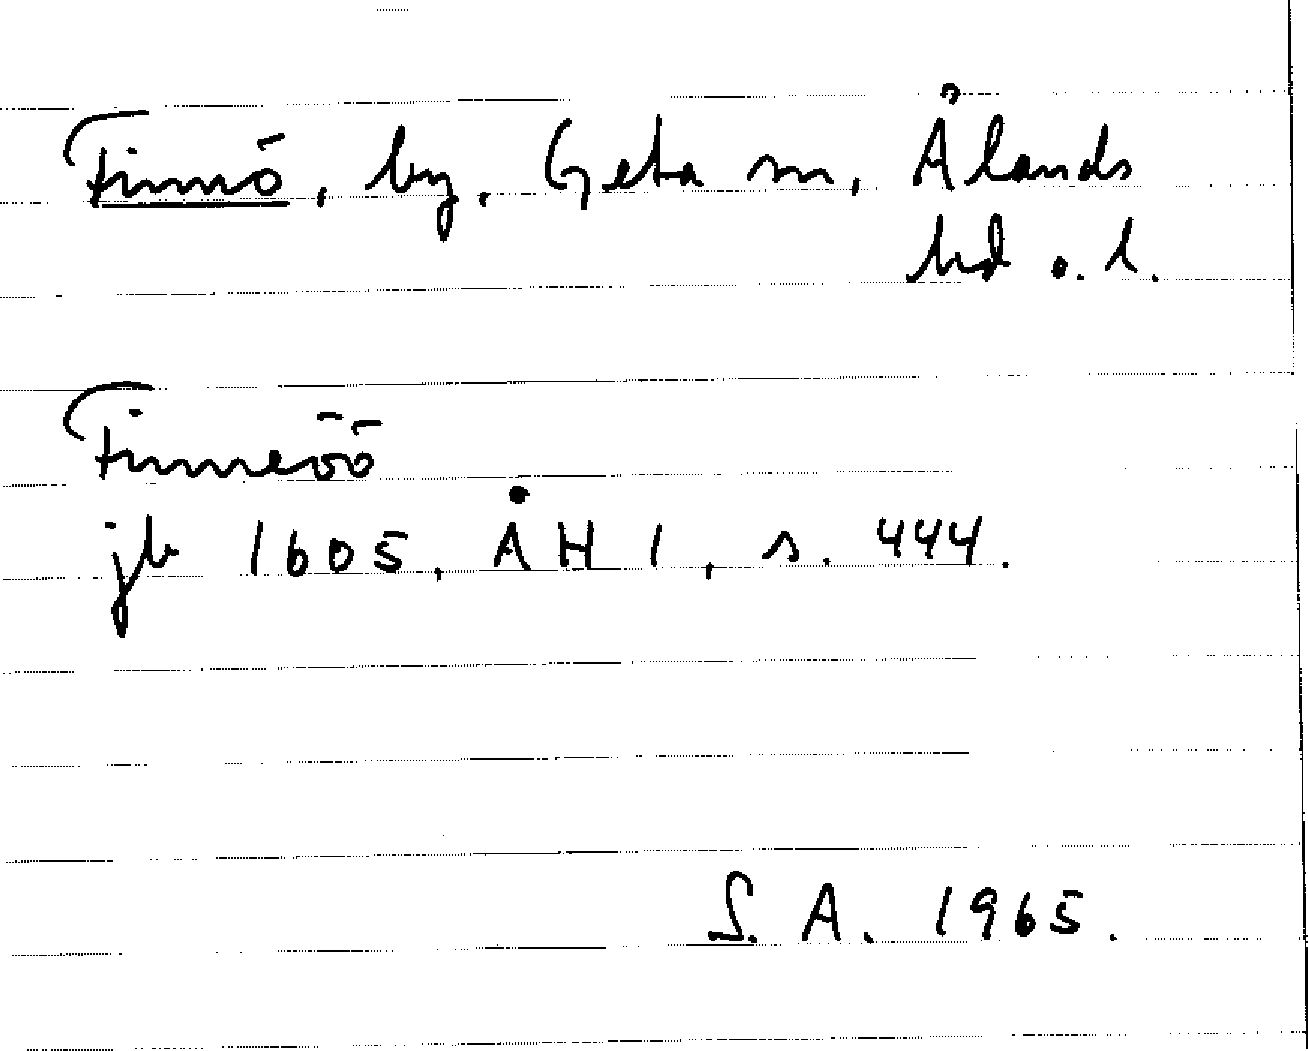 Finnö, by. Geta sn, Ålands
hd o. l.
Finneöö
jb 1605, ÅH 1, s. 444.
S. A. 1965.